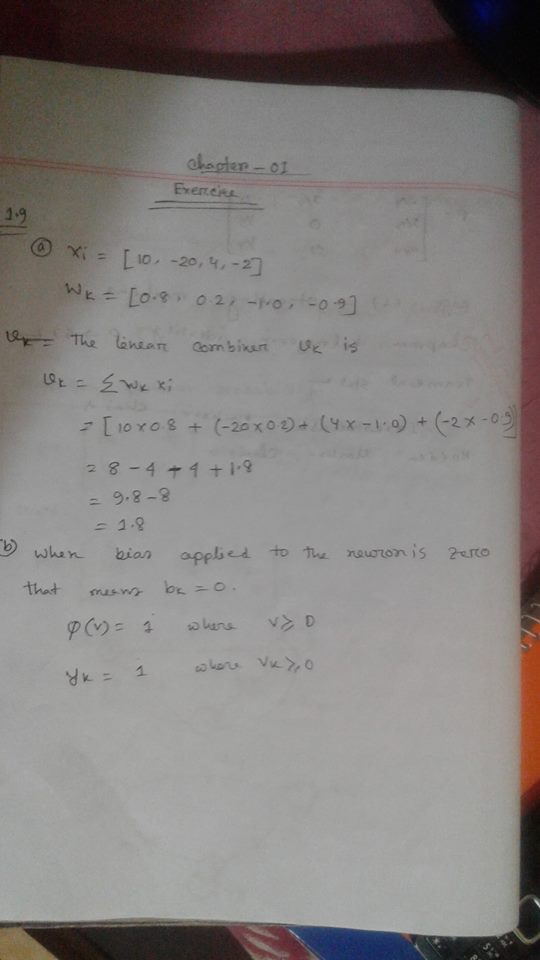 Chapter - 01
Exercise
1.9
(a) xi = [10, -20, 4, -2]
Wk = [0.8, 0.2, -1.0, -0.9]
The linear combiner Vk is
Vk = Σ Wk xi
= [10 x 0.8 + (-20 x 0.2) + (4 x -1.0) + (-2 x -0.9)]
= 8 - 4 - 4 + 1.8
= 9.8 - 8
= 1.8
(b) when bias applied to the neuron is zero
that means bk = 0.
φ(v) = 1 where v ≥ 0
yk = 1 where Vk ≥ 0